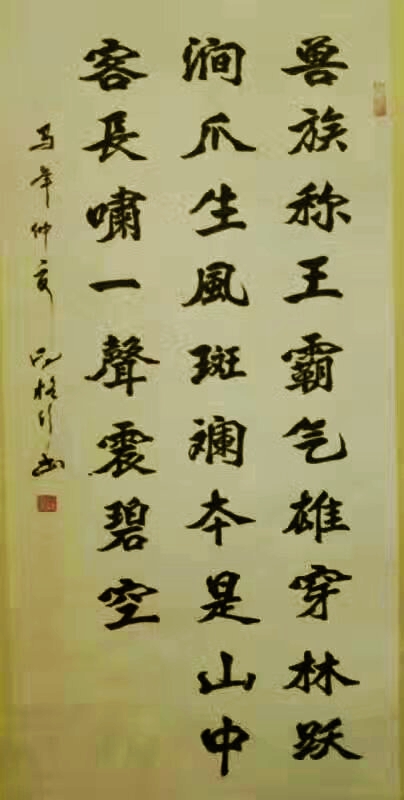 兽族称王霸气雄穿林跃
涧爪生風斑斓本是山中
客長嘯一聲震碧空
马年仲夏